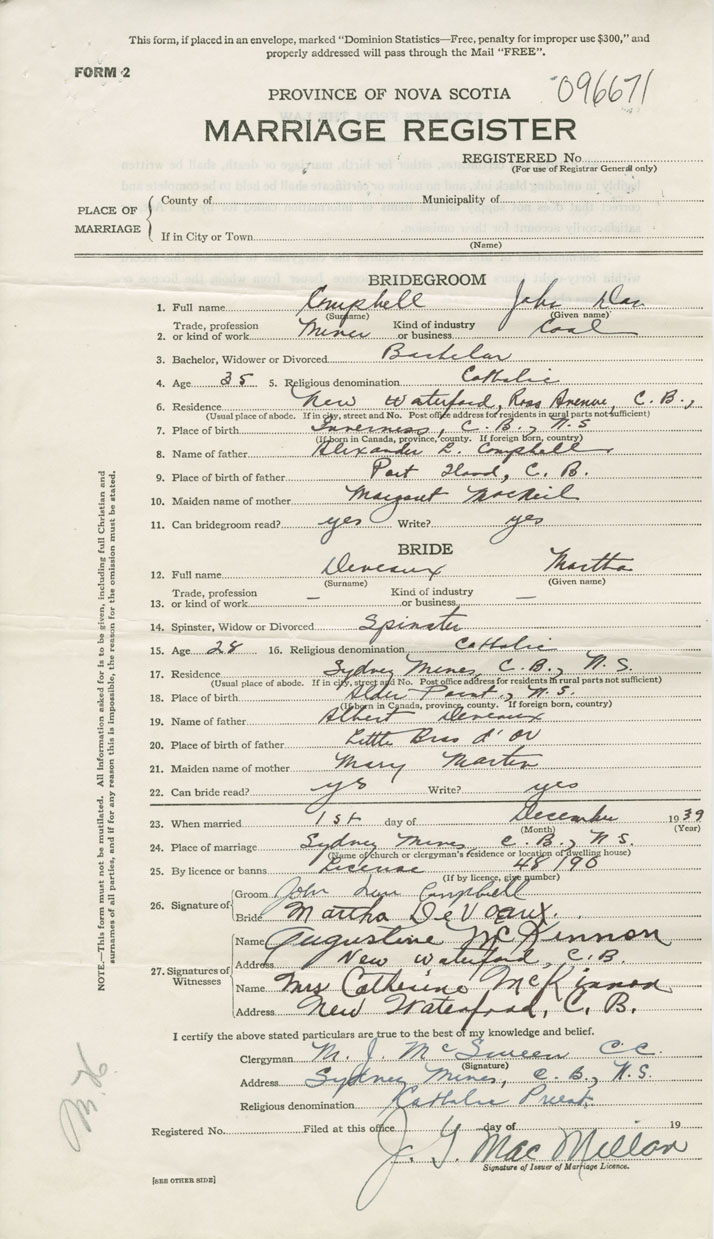 This form, if placed in an envelope, marked "Dominion Statistics—Free, penalty for improper use $300," and
properly addressed will pass through the Mail "FREE".
FORM 2
096671
PROVINCE OF NOVA SCOTIA
MARRIAGE REGISTER
REGISTERED No.
(For use of Registrar General only)
PLACE OF MARRIAGE
County of Municipality of
If in City or Town
(Name)
BRIDEGROOM
1. Full name Campbell John Dan
(Surname) (Given name)
2. Trade, profession or kind of work Miner Kind of industry or business Coal
3. Bachelor, Widower or Divorced Bachelor
4. Age 35 5. Religious denomination Catholic
6. Residence New Waterford, Ross Avenue, C. B.,
(Usual place of abode. If in city, street and No. Post office address for residents in rural parts not sufficient)
7. Place of birth Inverness, C. B., N. S
(If born in Canada, province, county. If foreign born, country)
8. Name of father Alexander L. Campbell
9. Place of birth of father Port Hood, C. B.
10. Maiden name of mother Margaret MacNeil
11. Can bridegroom read? yes Write? yes
BRIDE
12. Full name Deveaux Martha
(Surname) (Given name)
13. Trade, profession or kind of work — Kind of industry or business —
14. Spinster, Widow or Divorced Spinster
15. Age 28 16. Religious denomination Catholic
17. Residence Sydney Mines, C. B., N. S.
(Usual place of abode. If in city, street and No. Post office address for residents in rural parts not sufficient)
18. Place of birth Alder Point, N. S.
(If born in Canada, province, county. If foreign born, country)
19. Name of father Albert Deveaux
20. Place of birth of father Little Bras d'Or
21. Maiden name of mother Mary Martin
22. Can bride read? yes Write? yes
23. When married 1st day of December 1939
(Month) (Year)
24. Place of marriage Sydney Mines, C. B., N. S.
(Name of church or clergyman's residence or location of dwelling house)
25. By licence or banns License 48190
(If by licence, give number)
26. Signature of
Groom John Dan Campbell
Bride Martha DeVeaux.
27. Signatures of Witnesses
Name Augustine McKinnon
Address New Waterford, C. B.
Name Mrs Catherine McKinnon
Address New Waterford, C. B.
I certify the above stated particulars are true to the best of my knowledge and belief.
Clergyman M. J. McSween C.C.
(Signature)
Address Sydney Mines, C. B., N. S.
Religious denomination Catholic Priest.
Registered No. Filed at this office day of 19
J. Y. MacMillan
Signature of Issuer of Marriage Licence.
[SEE OTHER SIDE]
NOTE.—This form must not be mutilated. All information asked for is to be given, including full Christian and
surnames of all parties, and if for any reason this is impossible, the reason for the omission must be stated.